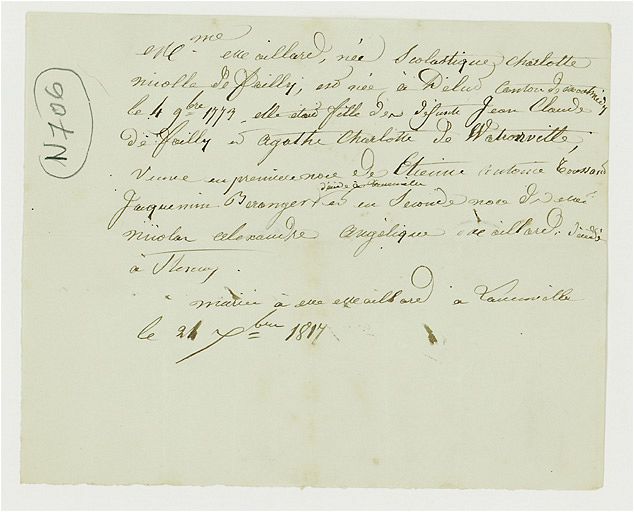 N706
M.me Maillard, née Scolastique Charlotte
nicolle De failly, est née, à Delut Canton de
le 4 9bre 1773, elle était fille des défunts Jean Claude
de failly et agathe Charlotte de Watronville,
Veuve en premiere noce de Etienne antoine
Jacqueminin Beranger et en Seconde noce de
décédé à
nicolas alexandre angélique Maillard, décédé
à
mariée à Me Maillard à
le 21 Xbre 1817